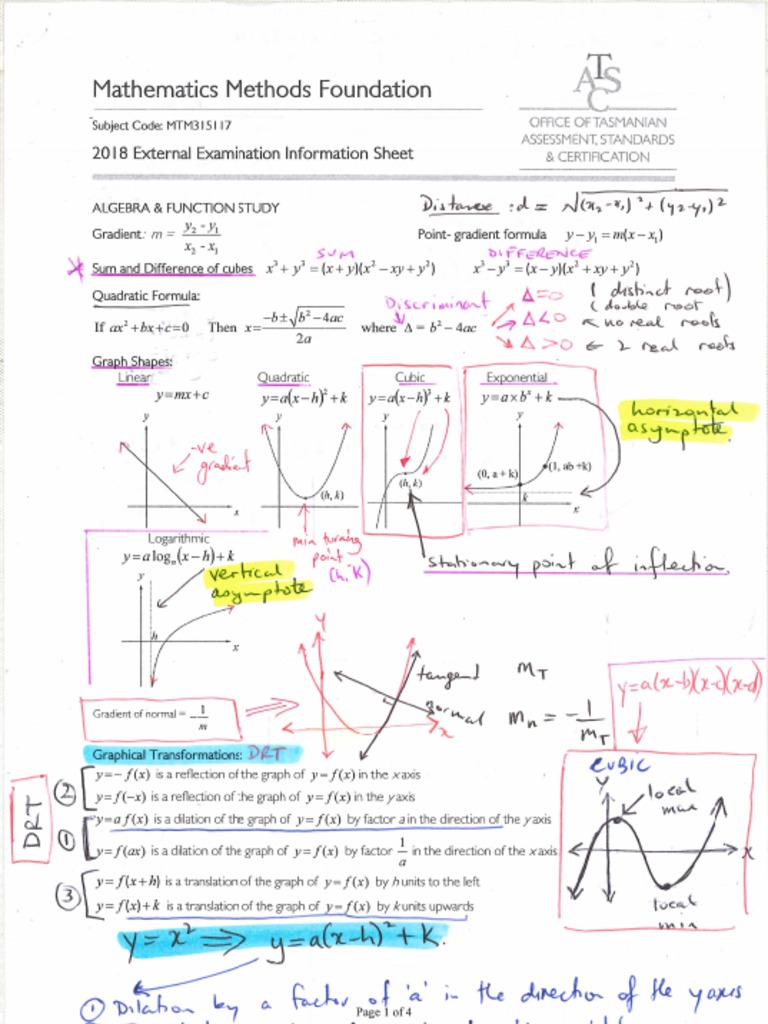 Mathematics Methods Foundation
ATSC
Subject Code: MTM315117
OFFICE OF TASMANIAN
ASSESSMENT, STANDARDS
& CERTIFICATION
2018 External Examination Information Sheet
ALGEBRA & FUNCTION STUDY
Distance : d = √(x₂-x₁)²+(y₂-y₁)²
Gradient: m = (y₂ - y₁)/(x₂ - x₁)
Point- gradient formula y-y₁=m(x-x₁)
SUM DIFFERENCE
Sum and Difference of cubes x³+y³=(x+y)(x²-xy+y²) x³-y³=(x-y)(x²+xy+y²)
Quadratic Formula:
Discriminant
Δ=0 (1 distinct root)
(double root
If ax²+bx+c=0 Then x=(-b±√(b²-4ac))/2a where Δ=b²-4ac
Δ<0 ← no real roots
Δ>0 ← 2 real roots
Graph Shapes:
Linear Quadratic Cubic Exponential
y=mx+c y=a(x-h)²+k y=a(x-h)³+k y=a×bˣ+k
horizontal
asymptote.
y y y y
-ve
gradient
(h, k)
(h, k)
(0, a+k)
(1, ab+k)
k
x x x x
min turning
point
(h, k)
stationary point of inflection.
Logarithmic
y=alogₙ(x-h)+k
vertical
asymptote
y
h
x
Y
x
tangend mT
normal mn = -1/mT
y=a(x-b)(x-c)(x-d)
Gradient of normal = -1/m
Graphical Transformations: DRT
DRT
② y=-f(x) is a reflection of the graph of y=f(x) in the x axis
y=f(-x) is a reflection of the graph of y=f(x) in the y axis
① y=af(x) is a dilation of the graph of y=f(x) by factor a in the direction of the y axis
y=f(ax) is a dilation of the graph of y=f(x) by factor 1/a in the direction of the x axis
③ y=f(x+h) is a translation of the graph of y=f(x) by h units to the left
y=f(x)+k is a translation of the graph of y=f(x) by k units upwards
CUBIC
Y
local
max
x
local
min
y=x² ⇒ y=a(x-h)²+k.
① Dilation by a factor of 'a' in the direction of the y axis
Page 1 of 4